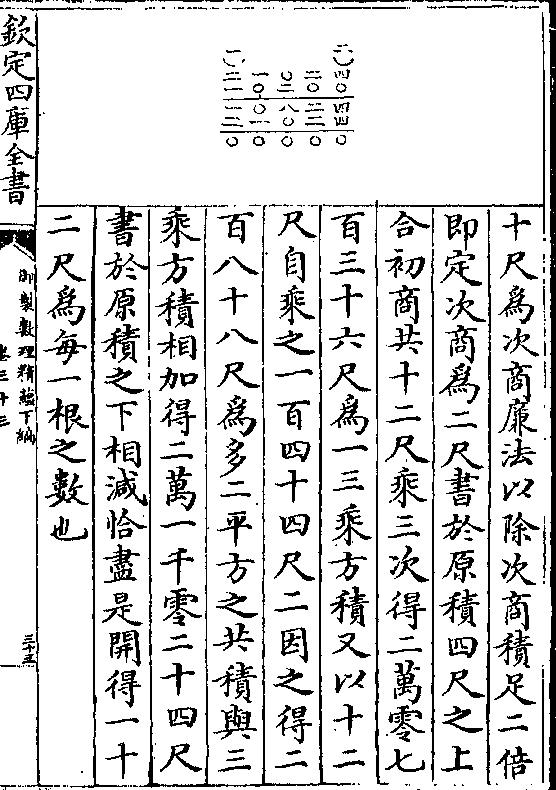 二四〇四四〇
二〇二二〇
〇二八〇〇
一〇〇一〇
一二一一二〇
十尺爲次商廉法以除次商積足二倍
即定次商爲二尺書於原積四尺之上
合初商共十二尺乘三次得二萬零七
百三十六尺爲一三乘方積又以十二
尺自乘之一百四十四尺二因之得二
百八十八尺爲多二平方之共積與三
乘方積相加得二萬一千零二十四尺
書於原積之下相減恰盡是開得一十
二尺爲每一根之數也
欽定四庫全書
御製數理精蘊下編
卷三十三
三十五